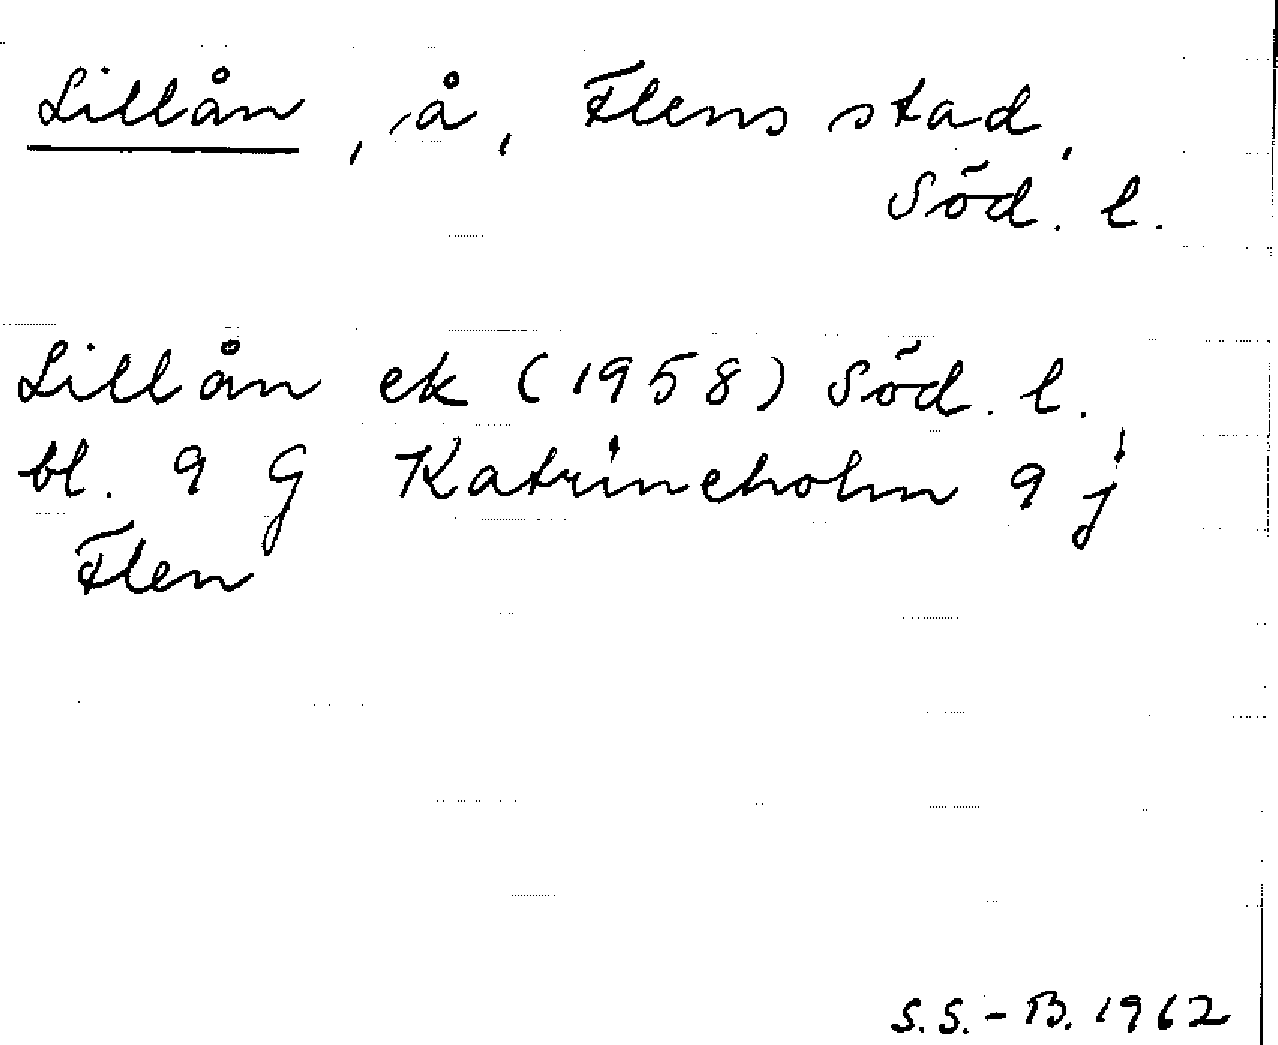 Lillån, å, Flens stad,
Söd. l.
Lillån ek (1958) Söd. l.
bl. 9 G Katrineholm 9 j
Flen
S.S.-B. 1962